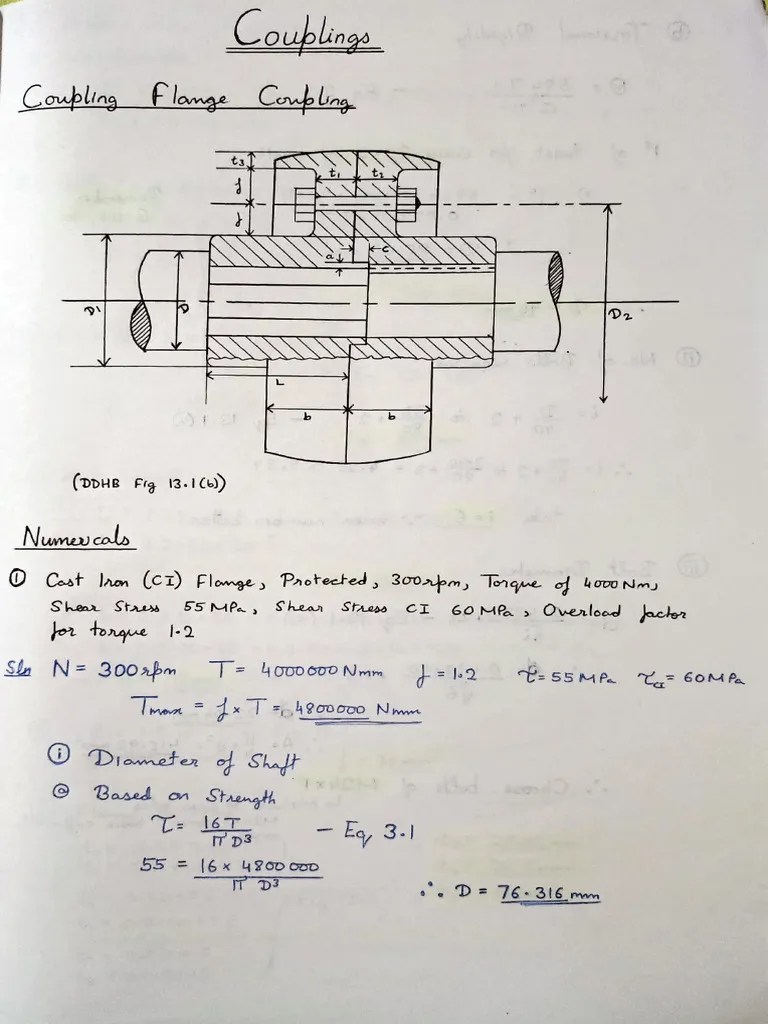 Couplings
Coupling Flange Coupling
t3
t1 t2
f
f
a c
D1 D D2
L
b b
(DDHB Fig 13.1(b))
Numericals
① Cast Iron (CI) Flange, Protected, 300rpm, Torque of 4000Nm,
Shear Stress 55MPa, Shear Stress CI 60MPa, Overload factor
for torque 1.2
Sln N = 300rpm T = 4000000 Nmm f = 1.2 τ = 55MPa τCI = 60MPa
Tmax = f x T = 4800000 Nmm
ⓘ Diameter of Shaft
ⓐ Based on Strength
τ = 16T / π D³ – Eq 3.1
55 = 16 x 4800000 / π D³
∴ D = 76.316 mm